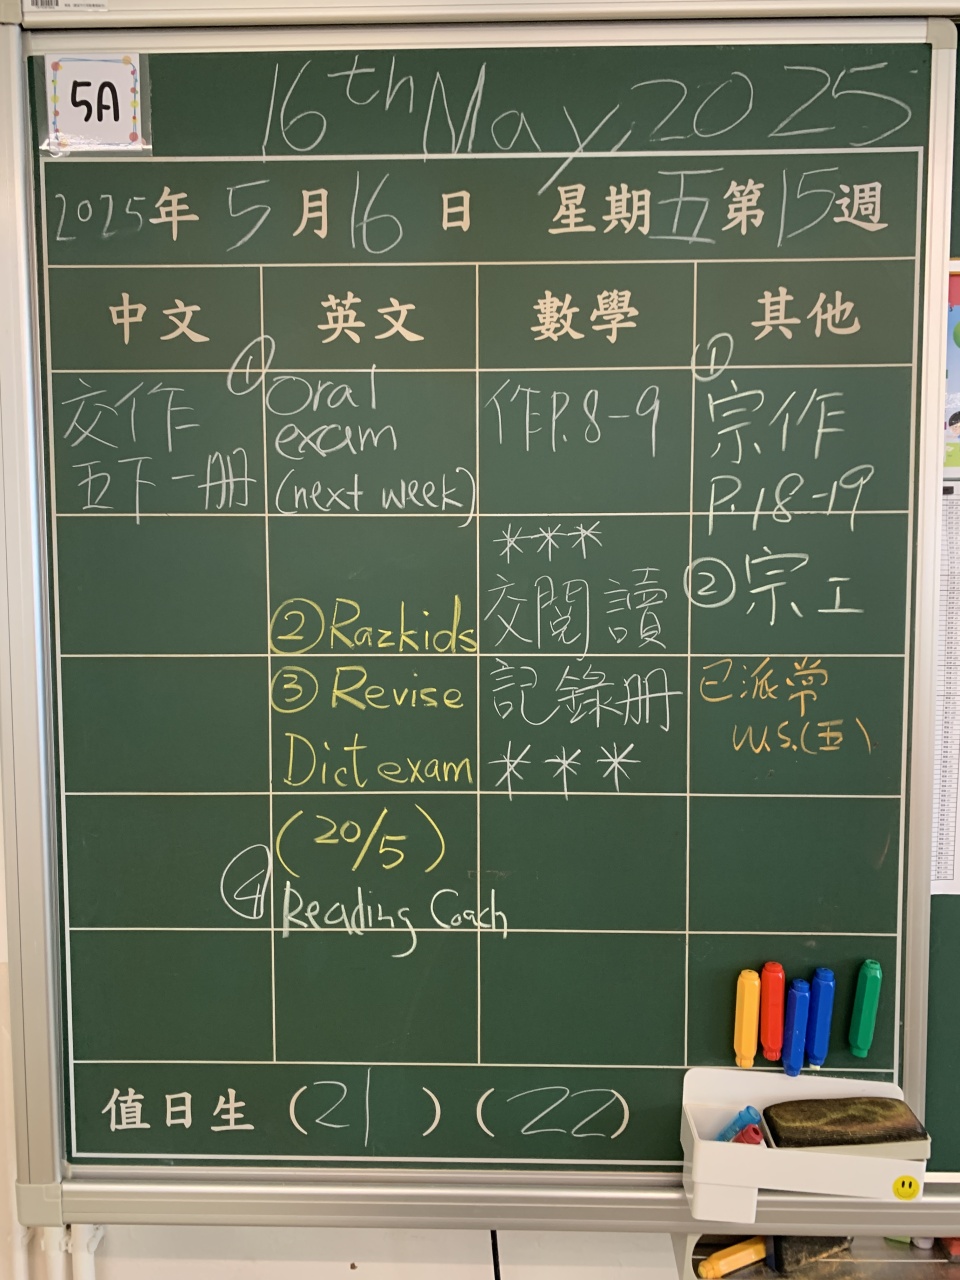 5A
16th May, 2025
2025年 5月16日 星期五第15週
中文
英文
數學
其他
交作
五下一冊
① Oral
exam
(next week)
② Razkids
③ Revise
Dict exam
(20/5)
④ Reading Coach
作P.8-9
***
交閱讀
記錄冊
***
①
宗作
P.18-19
② 宗工
已派常
W.S.(五)
值日生 (21)(22)